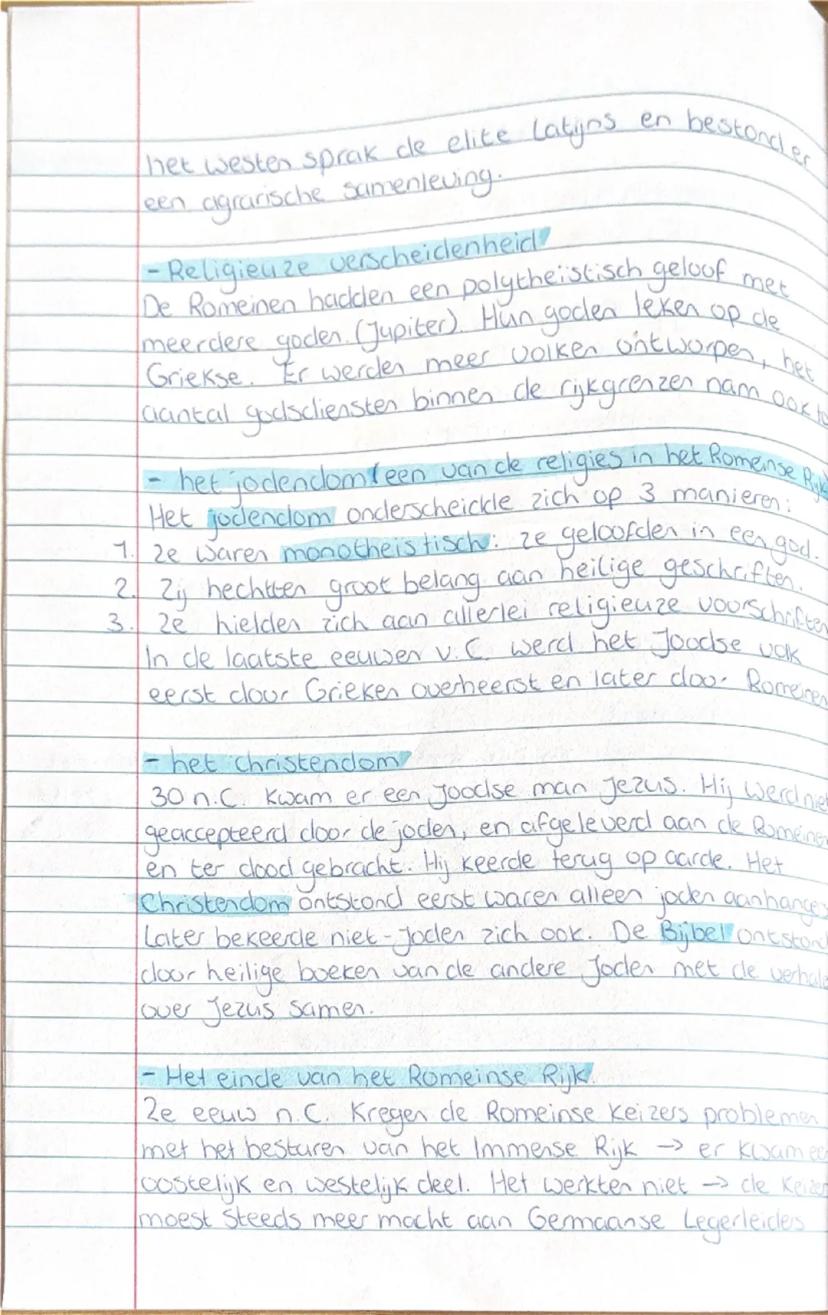 het westen sprak de elite Latijns en bestond er
een agrarische samenleving.
- Religieuze verscheidenheid
De Romeinen hadden een polytheïstisch geloof met
meerdere goden. (Jupiter). Hun goden leken op de
Griekse. Er werden meer volken ontworpen, het
aantal godsdiensten binnen de rijkgrenzen nam ook
- het jodendom (een van de religies in het Romeinse Rijk
Het jodendom onderscheidde zich op 3 manieren:
1. Ze waren monotheistisch: ze geloofden in een god.
2. Zij hechtten groot belang aan heilige geschriften.
3. Ze hielden zich aan allerlei religieuze voorschriften
In de laatste eeuwen v.C. werd het Joodse volk
eerst door Grieken overheerst en later door Romeinen
- het christendom
30 n.C. kwam er een Joodse man Jezus. Hij werd niet
geaccepteerd door de joden, en afgeleverd aan de Romeinen
en ter dood gebracht. Hij keerde terug op aarde. Het
Christendom ontstond eerst waren alleen joden aanhangers
Later bekeerde niet-Joden zich ook. De Bijbel ontstond
door heilige boeken van de andere Joden met de verhale
over Jezus samen.
- Het einde van het Romeinse Rijk
2e eeuw n.C. kregen de Romeinse keizers problemen
met het besturen van het Immense Rijk → er kwam een
oostelijk en westelijk deel. Het werkten niet → de keizer
moest steeds meer macht aan Germaanse Legerleiders